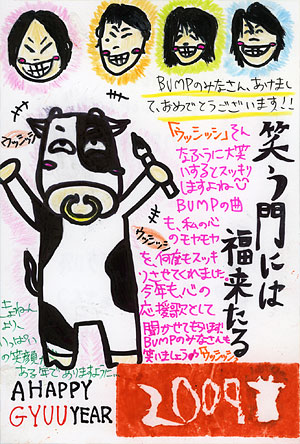 BUMPのみなさん、あけまし
て、おめでとうございます!!
笑う門には
福来たる
「ウッシッシ」そん
なふうに大笑
いするとスッキリ
しますよね
BUMPの曲
も、私の心
のモヤモヤ
を、何度もスッキ
リさせてくれました。
今年も、心の
応援歌として
聞かせてもらいます!
BUMPのみなさんも
笑いましょう♪「ウッシッシ」
ウッシッシ
ウッシッシ
きょねん
より、
いっぱい
の笑顔が
ある年でありますように…
A HAPPY
GYUU YEAR
2009